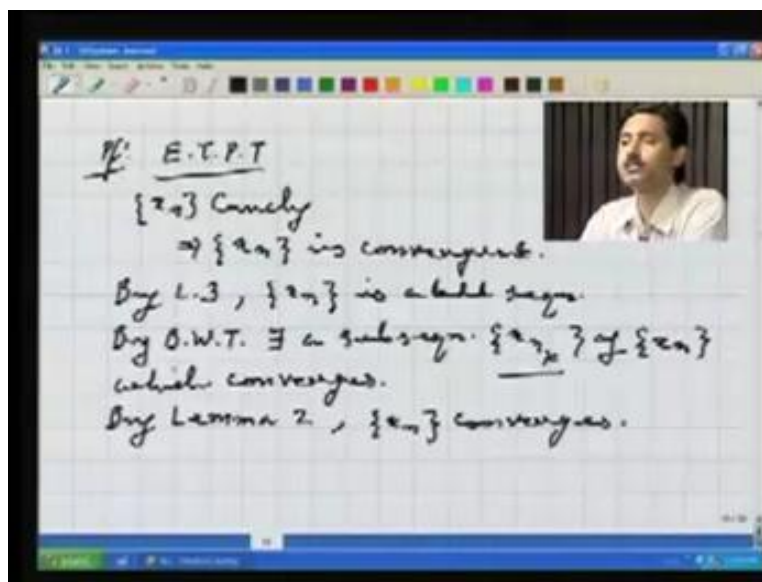 Pf: E.T.P.T
{x_n} Cauchy
⇒ {x_n} is convergent.
By L.3, {x_n} is a bdd seqn.
By B.W.T. ∃ a subseqn. {x_{n_k}} of {x_n}
which converges.
By Lemma 2, {x_n} converges.